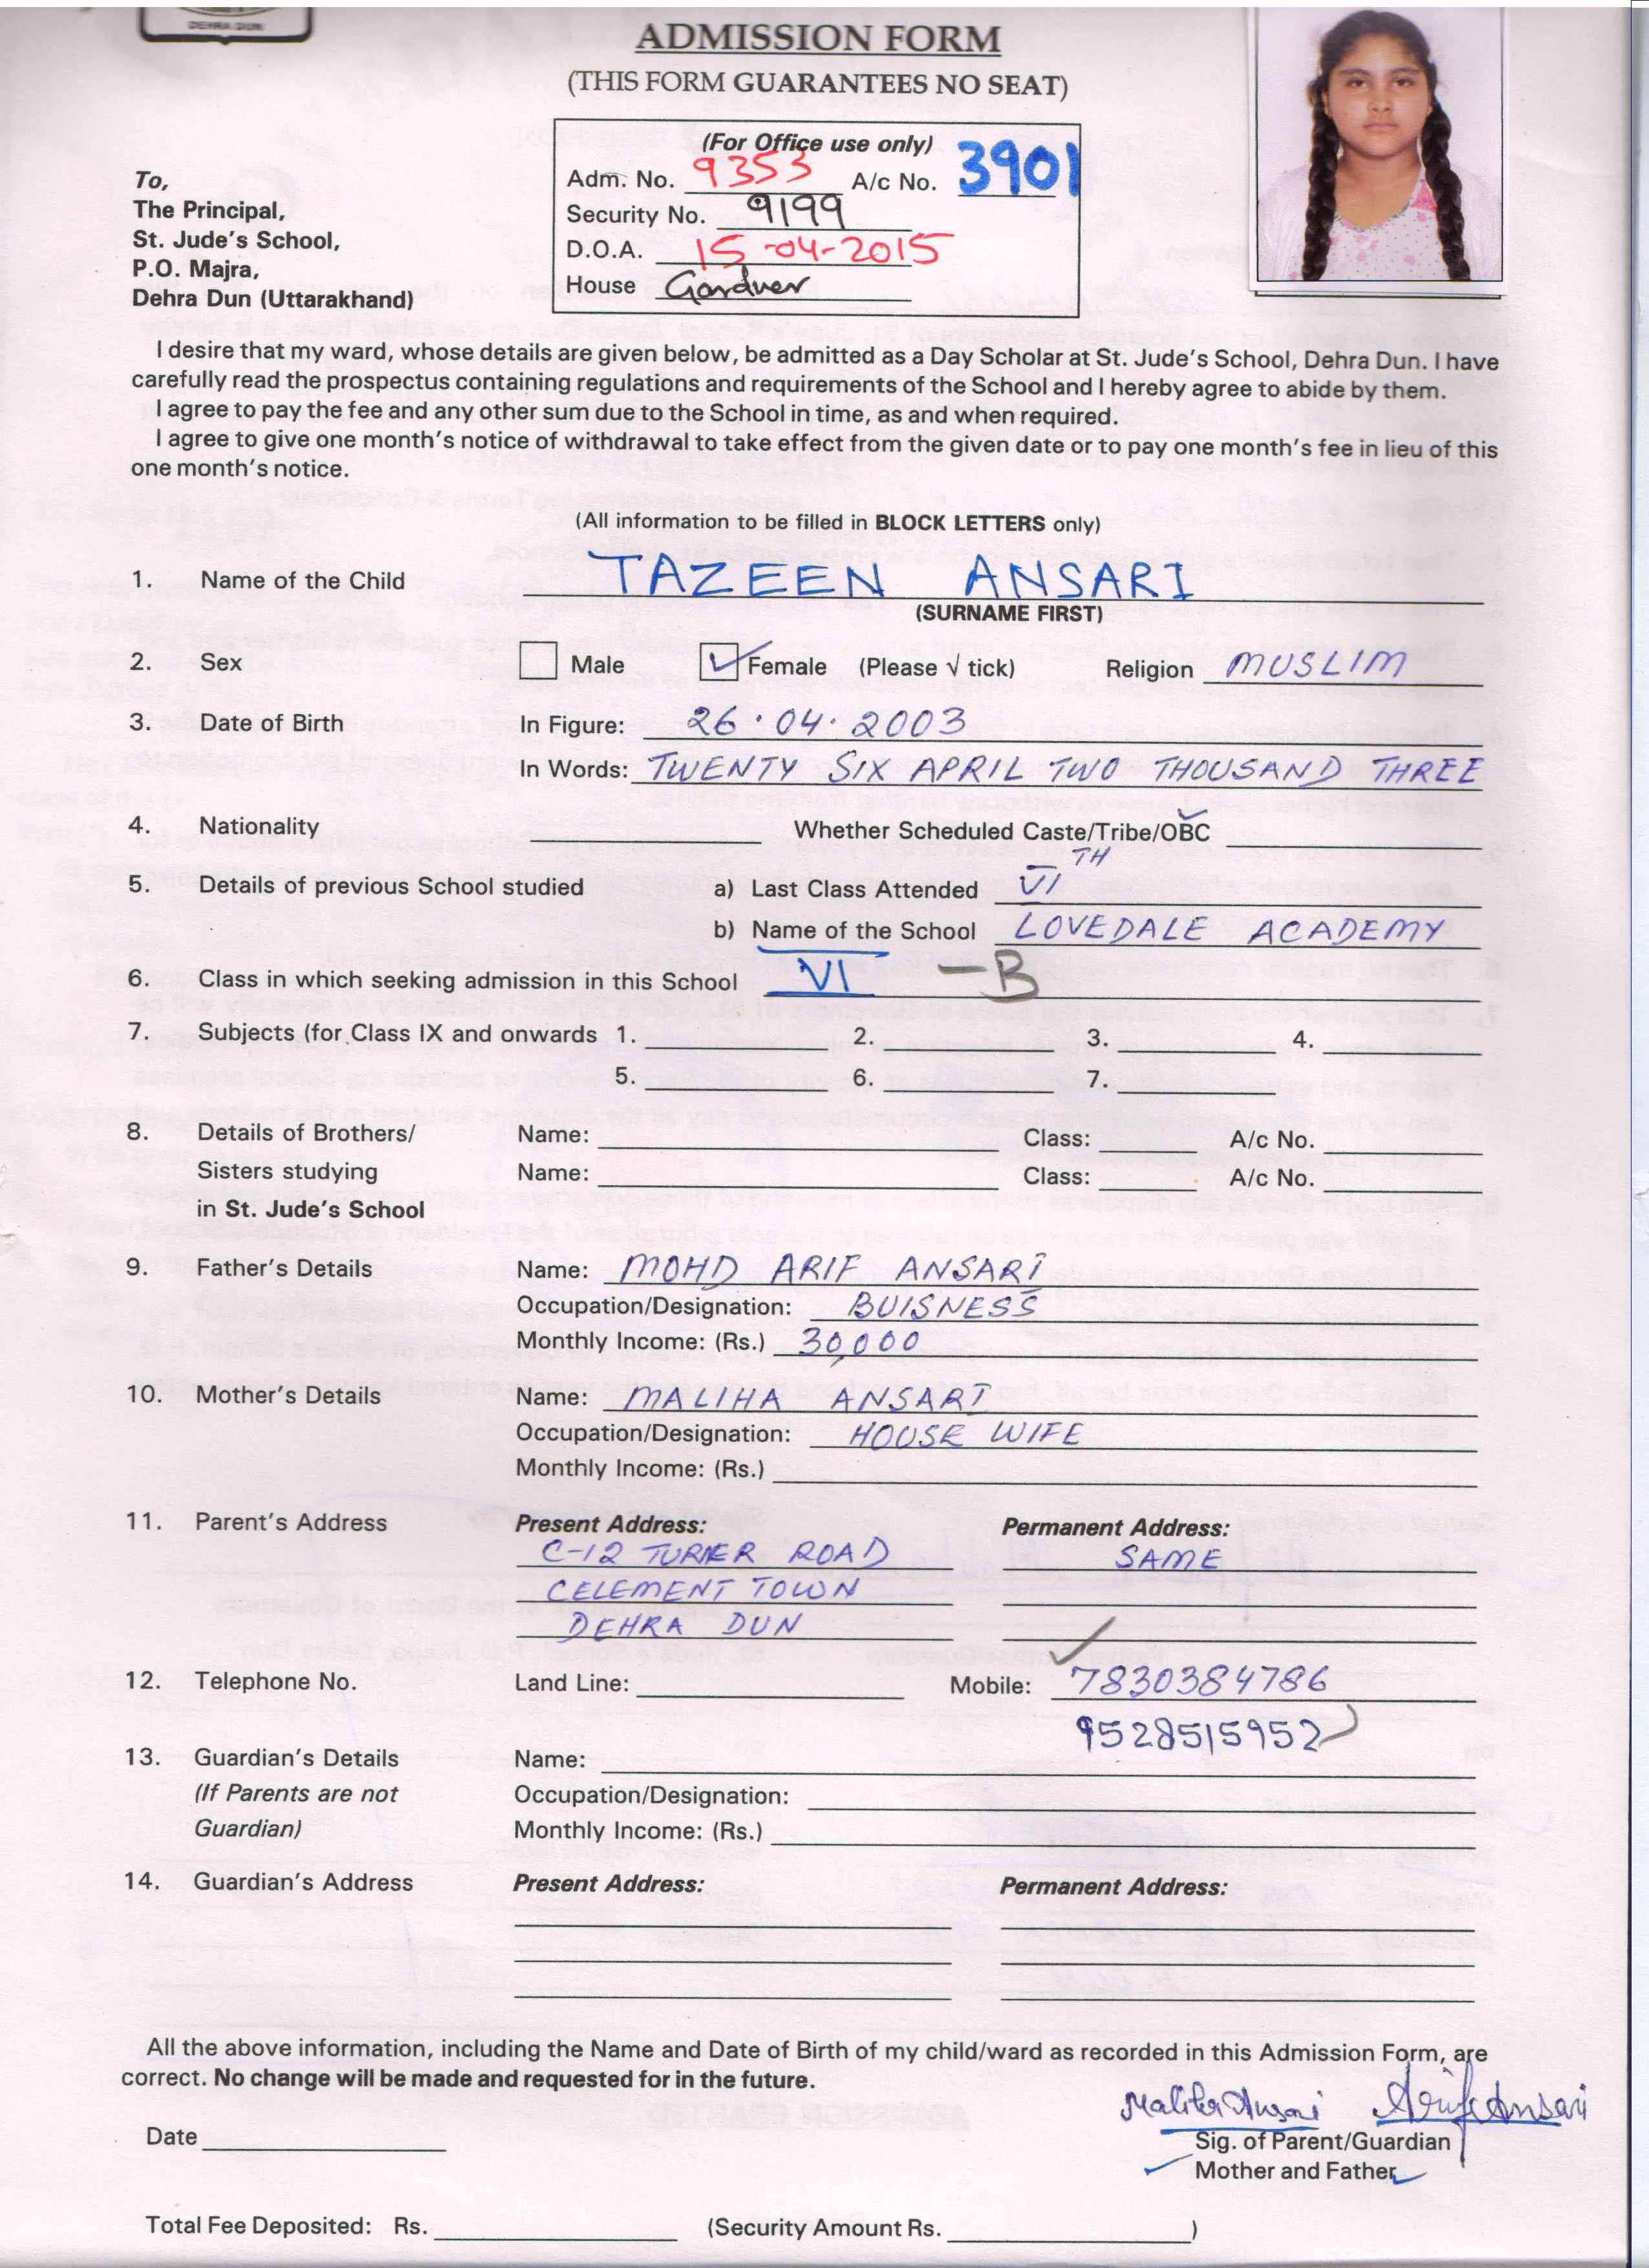 DEHRA DUN
ADMISSION FORM
(THIS FORM GUARANTEES NO SEAT)
(For Office use only)
Adm. No. 9353 A/c No. 3901
Security No. 9199
D.O.A. 15-04-2015
House Gardner
To,
The Principal,
St. Jude's School,
P.O. Majra,
Dehra Dun (Uttarakhand)
I desire that my ward, whose details are given below, be admitted as a Day Scholar at St. Jude's School, Dehra Dun. I have
carefully read the prospectus containing regulations and requirements of the School and I hereby agree to abide by them.
I agree to pay the fee and any other sum due to the School in time, as and when required.
I agree to give one month's notice of withdrawal to take effect from the given date or to pay one month's fee in lieu of this
one month's notice.
(All information to be filled in BLOCK LETTERS only)
1. Name of the Child TAZEEN ANSARI
(SURNAME FIRST)
2. Sex Male ✓ Female (Please √ tick) Religion MUSLIM
3. Date of Birth In Figure: 26.04.2003
In Words: TWENTY SIX APRIL TWO THOUSAND THREE
4. Nationality Whether Scheduled Caste/Tribe/OBC ✓
5. Details of previous School studied a) Last Class Attended VI TH
b) Name of the School LOVEDALE ACADEMY
6. Class in which seeking admission in this School VI - B
7. Subjects (for Class IX and onwards 1. 2. 3. 4.
5. 6. 7.
8. Details of Brothers/ Name: Class: A/c No.
Sisters studying Name: Class: A/c No.
in St. Jude's School
9. Father's Details Name: MOHD ARIF ANSARI
Occupation/Designation: BUISNESS
Monthly Income: (Rs.) 30,000
10. Mother's Details Name: MALIHA ANSARI
Occupation/Designation: HOUSE WIFE
Monthly Income: (Rs.)
11. Parent's Address Present Address: Permanent Address:
C-12 TURNER ROAD SAME
CELEMENT TOWN
DEHRA DUN
12. Telephone No. Land Line: Mobile: 7830384786
9528515952
13. Guardian's Details Name:
(If Parents are not Occupation/Designation:
Guardian) Monthly Income: (Rs.)
14. Guardian's Address Present Address: Permanent Address:
All the above information, including the Name and Date of Birth of my child/ward as recorded in this Admission Form, are
correct. No change will be made and requested for in the future.
Maliha Ansari Arif Ansari
Date Sig. of Parent/Guardian
Mother and Father
Total Fee Deposited: Rs. (Security Amount Rs. )